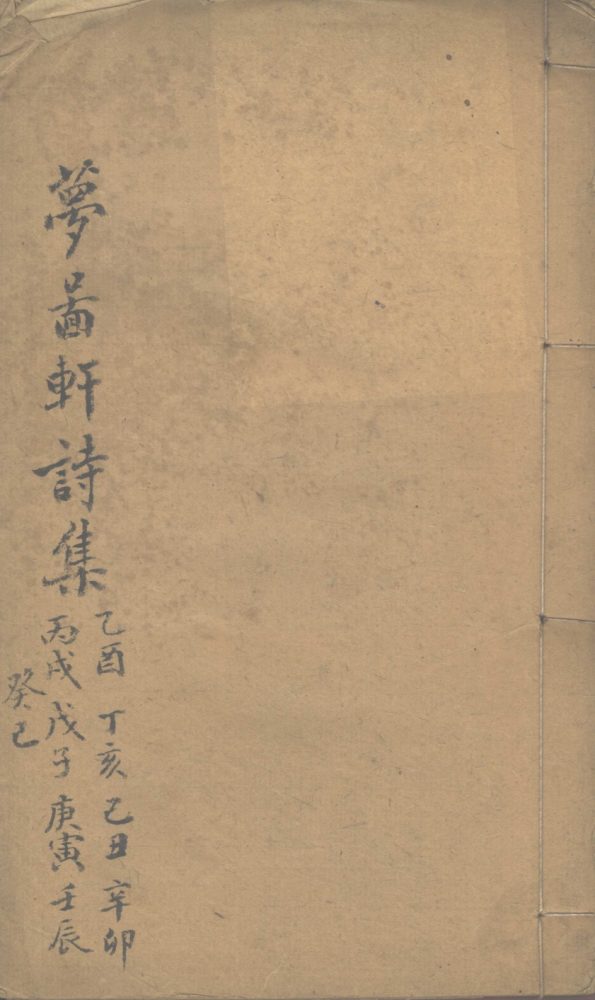 夢啚軒詩集
乙酉 丁亥 己丑 辛卯
丙戌 戊子 庚寅 壬辰
癸巳